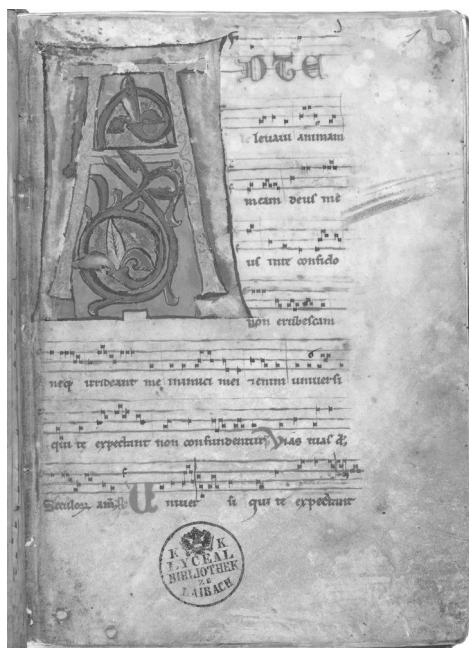 A D TE
le levavi animam
meam deus me
us in te confido
non erubescam
neqƺ irrideant me inimici mei etenim universi
qui te expectant non confundentur Vias tuas d̄.
Seculoꝝ am̄. Univer si qui te expectant
K K
LYCEAL
BIBLIOTHEK
ZU
LAIBACH
1